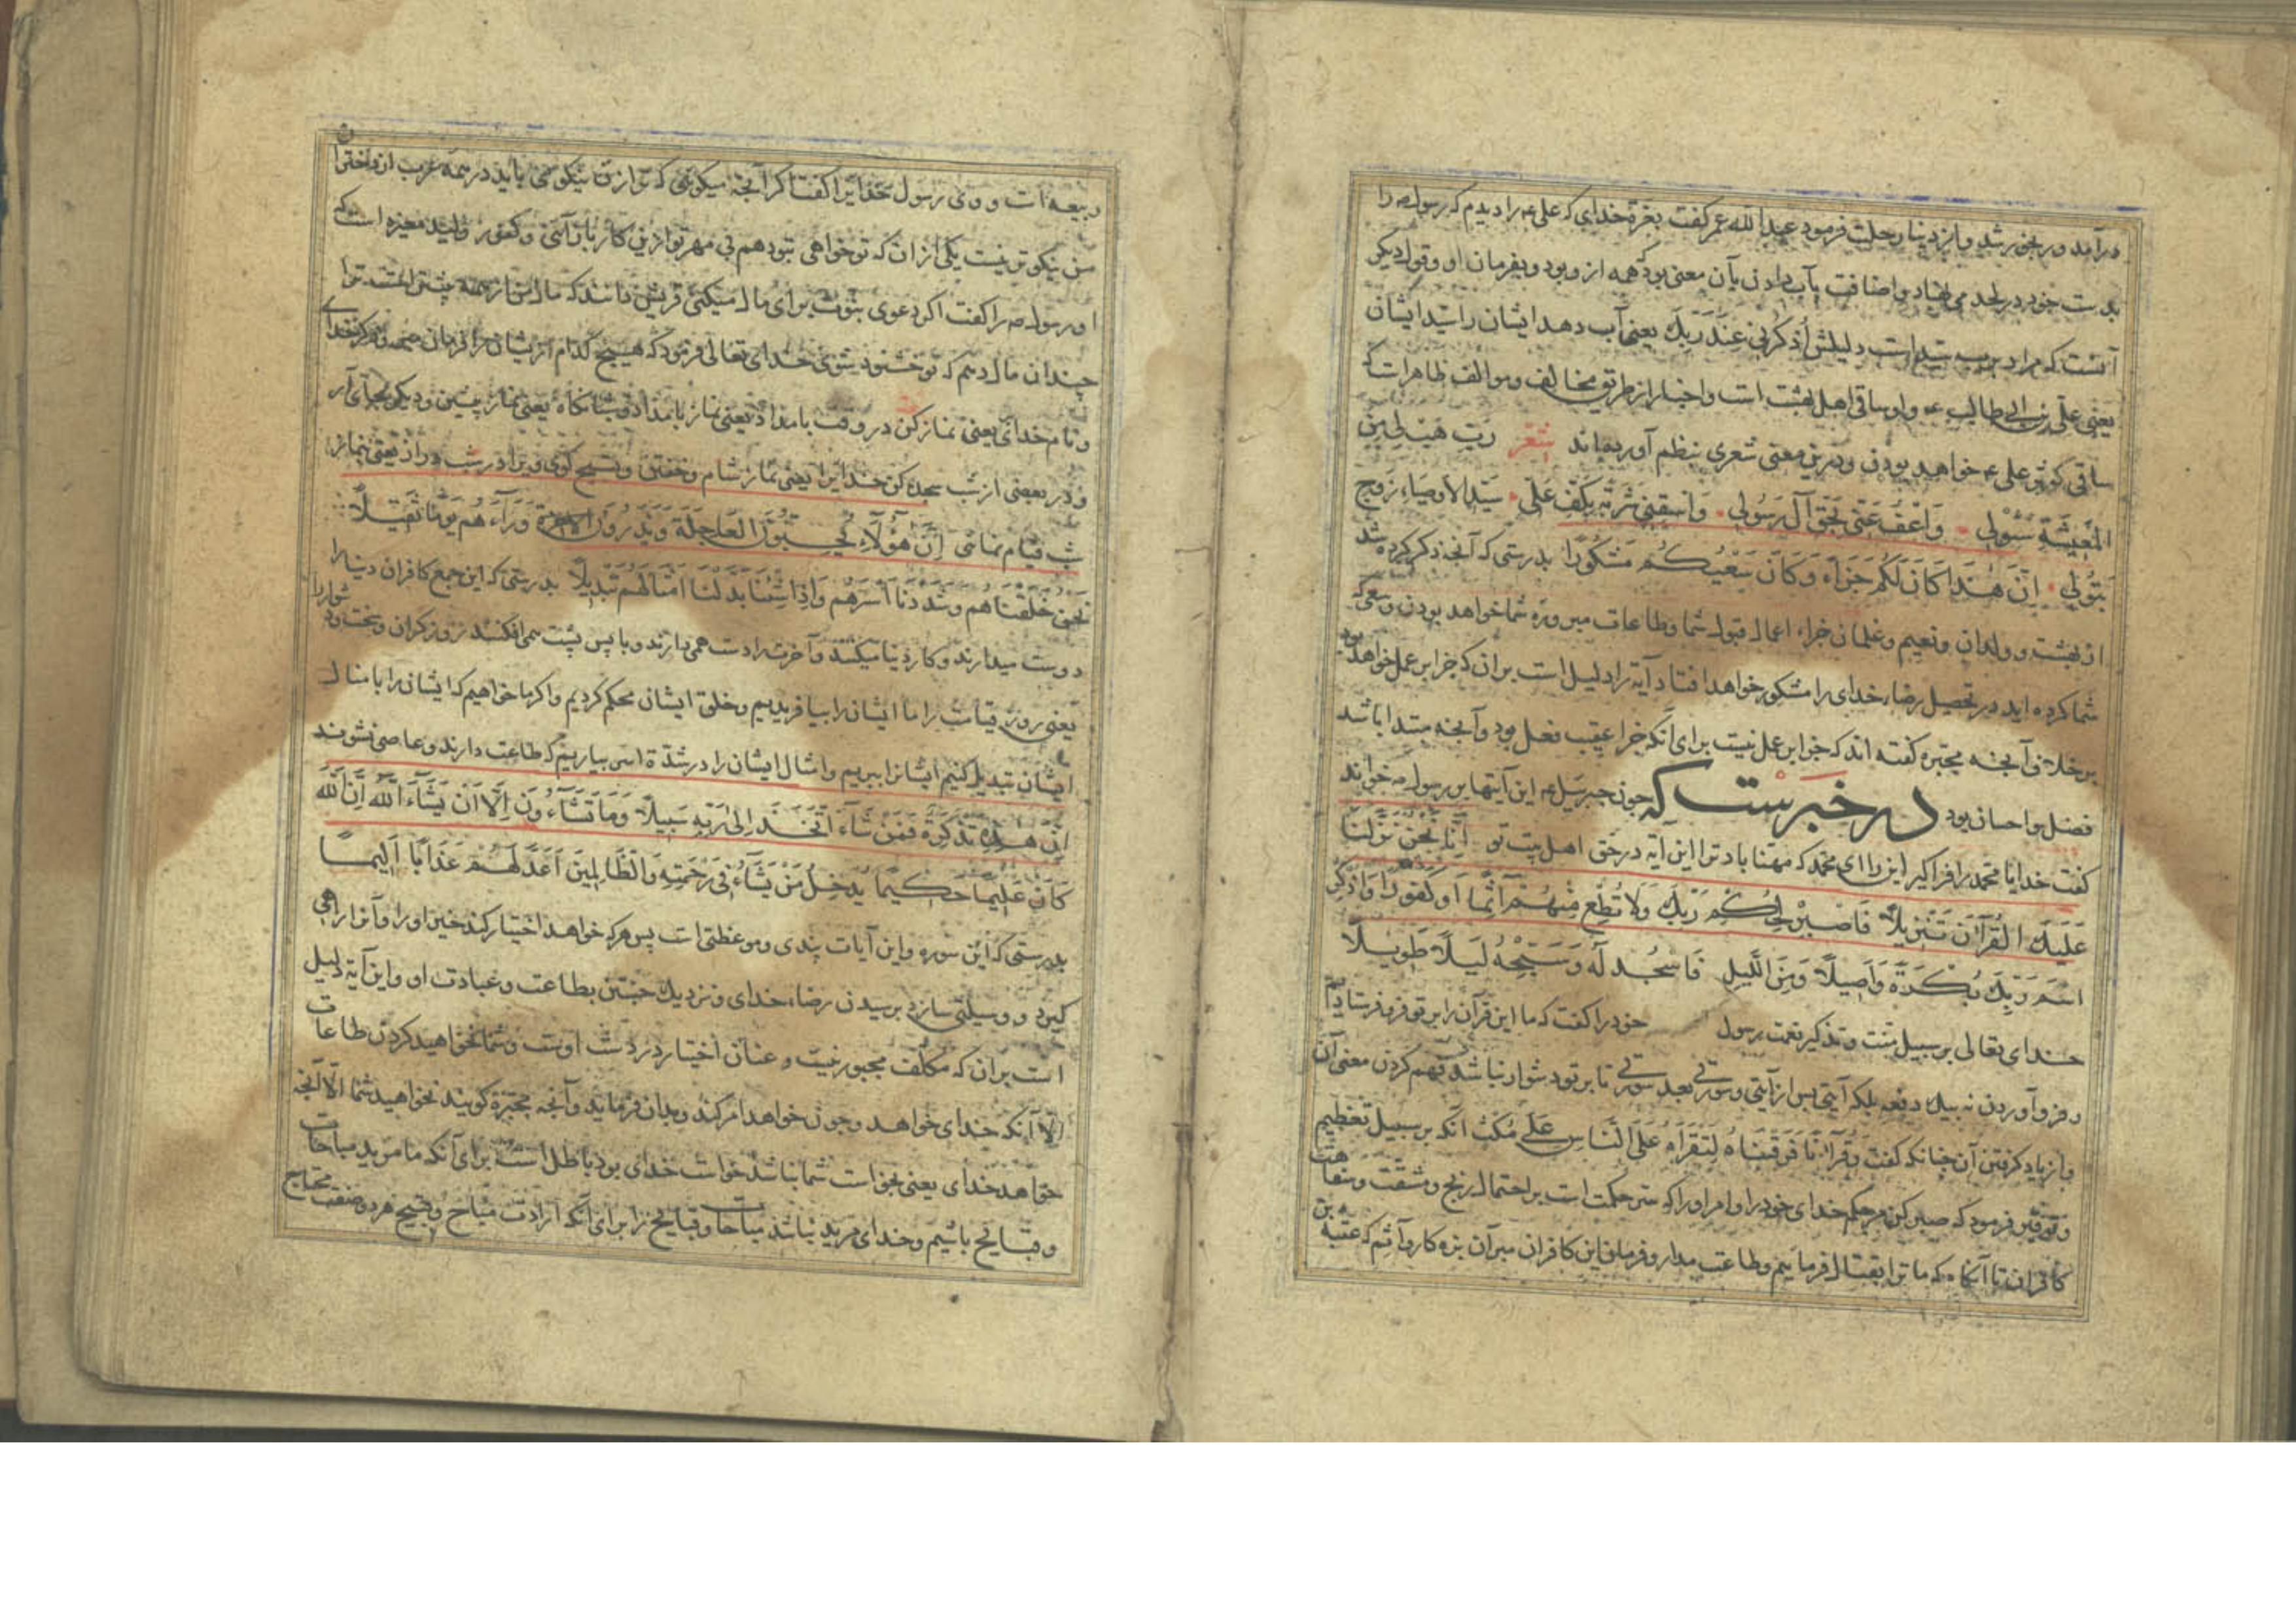 درآمد و رنجور شد و از دنیا رحلت فرمود عبدالله عمر گفت بعزة خدای که علی عم را دیدم که رسول صه را
بدست خود در لحد می‌نهاد و اضافت بآب دادن بآن معنی بود که همه از و بود و بفرمان او و قول دیگر
آنست که مراد برب سید است دلیلش أذکرنی عند ربک یعنی آب دهد ایشان را سید ایشان
یعنی علی بن ابی طالب عه و او ساقی اهل بهشت است و اخبار از طریق مخالف و موالف ظاهر است که
ساقی کوثر علی عه خواهد بودن و درین معنی شعری بنظم آورده‌اند شعر رب هب لی من
المعیشة سؤلی واعف عنی بحق آل رسولی واسقنی شربة بکف علی سید الاوصیاء زوج
بتولی إن هذا کان لکم جزاء وکان سعیکم مشکورا بدرستی که آنچه ذکر کرده شد
از بهشت و ولدان و نعیم و غلمان جزاء اعمال قبول شما و طاعات مبروره شما خواهد بودن و سعی که
شما کرده اید در تحصیل رضاء خدای را مشکور خواهد افتاد آیه را دلیل است بران که جزا بر عمل خواهد بود
بر خلاف آنچه مجبره گفته اند که جزا بر عمل نیست برای آنکه جزا عقیب فعل بود و آنچه مبتدا باشد
فضل و احسان بود در خبرست که چون جبرئیل عه این آیتها بر رسول صه خواند
گفت خدایا محمد را فراگیر این را ای محمد که مهنا باد ترا این آیه در حق اهل بیت تو إنا نحن نزلنا
علیک القرآن تنزیلا فاصبر لحکم ربک ولا تطع منهم آثما أو کفورا واذکر
اسم ربک بکرة وأصیلا ومن اللیل فاسجد له وسبحه لیلا طویلا
خدای تعالی بر سبیل منت و تذکیر نعمت رسول خود را گفت که ما این قرآن را بر تو فرو فرستادیم
و فرو آوردن نه بیک دفعه بلکه آیتی پس از آیتی و سورتی بعد سورتی تا بر تو دشوار نباشد فهم کردن معنی آن
و از یاد گرفتن آن چنانکه گفت وقرآنا فرقناه لتقرأه علی الناس علی مکث آنکه بر سبیل تعظیم
و توقیر فرمود که صبر کن مر حکم خدای خود را و امر او را که سر حکمت است بر احتمال رنج و مشقت و سفاهت
کافران تا آنگاه که ما ترا بقتال فرماییم و طاعت مدار و فرمان این کافران مبر آن بزه کار و آثم که عتبه بن
ربیعه است و وی رسول خدایرا گفت اگر آنچه میگویی که تو از زن نیکو می باید در همه عرب از دختران
من نیکوتر نیست یکی از آن که تو خواهی بتو دهم بی مهر تو ازین کار باز آیی و کفور ولید مغیره است که
او رسول صه را گفت اگر دعوی نبوت برای مال میکنی قریش دانند که مال من از همه بیشتر است ترا
چندان مال دهم که تو خشنود شوی خدای تعالی فرمود که هیچ کدام از یشان را فرمان مبر و ذکر خدای
و نام خدای یعنی نماز کن در وقت بامداد یعنی نماز بامداد و شبانگاه یعنی نماز پیشین و دیگر بجای آر
و در بعضی از شب سجده کن خدایرا یعنی نماز شام و خفتن و تسبیح گوی ویرا در شب دراز یعنی نماز
شب قیام نمای إن هؤلاء یحبون العاجلة ویذرون وراءهم یوما ثقیلا
نحن خلقناهم وشددنا أسرهم وإذا شئنا بدلنا أمثالهم تبدیلا بدرستی که این جمع کافران دنیا را
دوست میدارند و کار دنیا میکنند و آخرت را دست همی دارند و با پس پشت می افکنند روز گران و سخت و دشوار را
یعنی روز قیامت را ما ایشان را بیافریدیم و خلق ایشان محکم کردیم و اگر ما خواهیم که ایشان را بامثال
ایشان تبدیل کنیم ایشانرا ببریم و امثال ایشان را در شدة اسر بیاریم که طاعت دارند و عاصی نشوند
إن هذه تذکرة فمن شاء اتخذ إلی ربه سبیلا وما تشاءون إلا أن یشاء الله إن الله
کان علیما حکیما یدخل من یشاء فی رحمته والظالمین أعد لهم عذابا ألیما
بدرستی که این سوره و این آیات پندی و موعظتی است پس هرکه خواهد اختیار کند خیر او را و آنرا راهی
گیرد و وسیلتی سازد برسیدن رضاء خدای و نزدیک جستن بطاعت و عبادت او و این آیه دلیل
است بران که مکلف مجبور نیست و عنان اختیار در دست اوست و شما نخواهید کردن طاعات
الا آنکه خدای خواهد و چون خواهد امر کند و بدان فرماید و آنچه مجبره گویند نخواهید شما الا آنچه
خواهد خدای یعنی بخواست شما نباشد خواست خدای بود باطل است برای آنکه ما مرید مباحات
و قبایح باشیم و خدای مرید نباشد مباحات و قبایح را برای آنکه ارادت مباح و قبیح هر دو محتاج